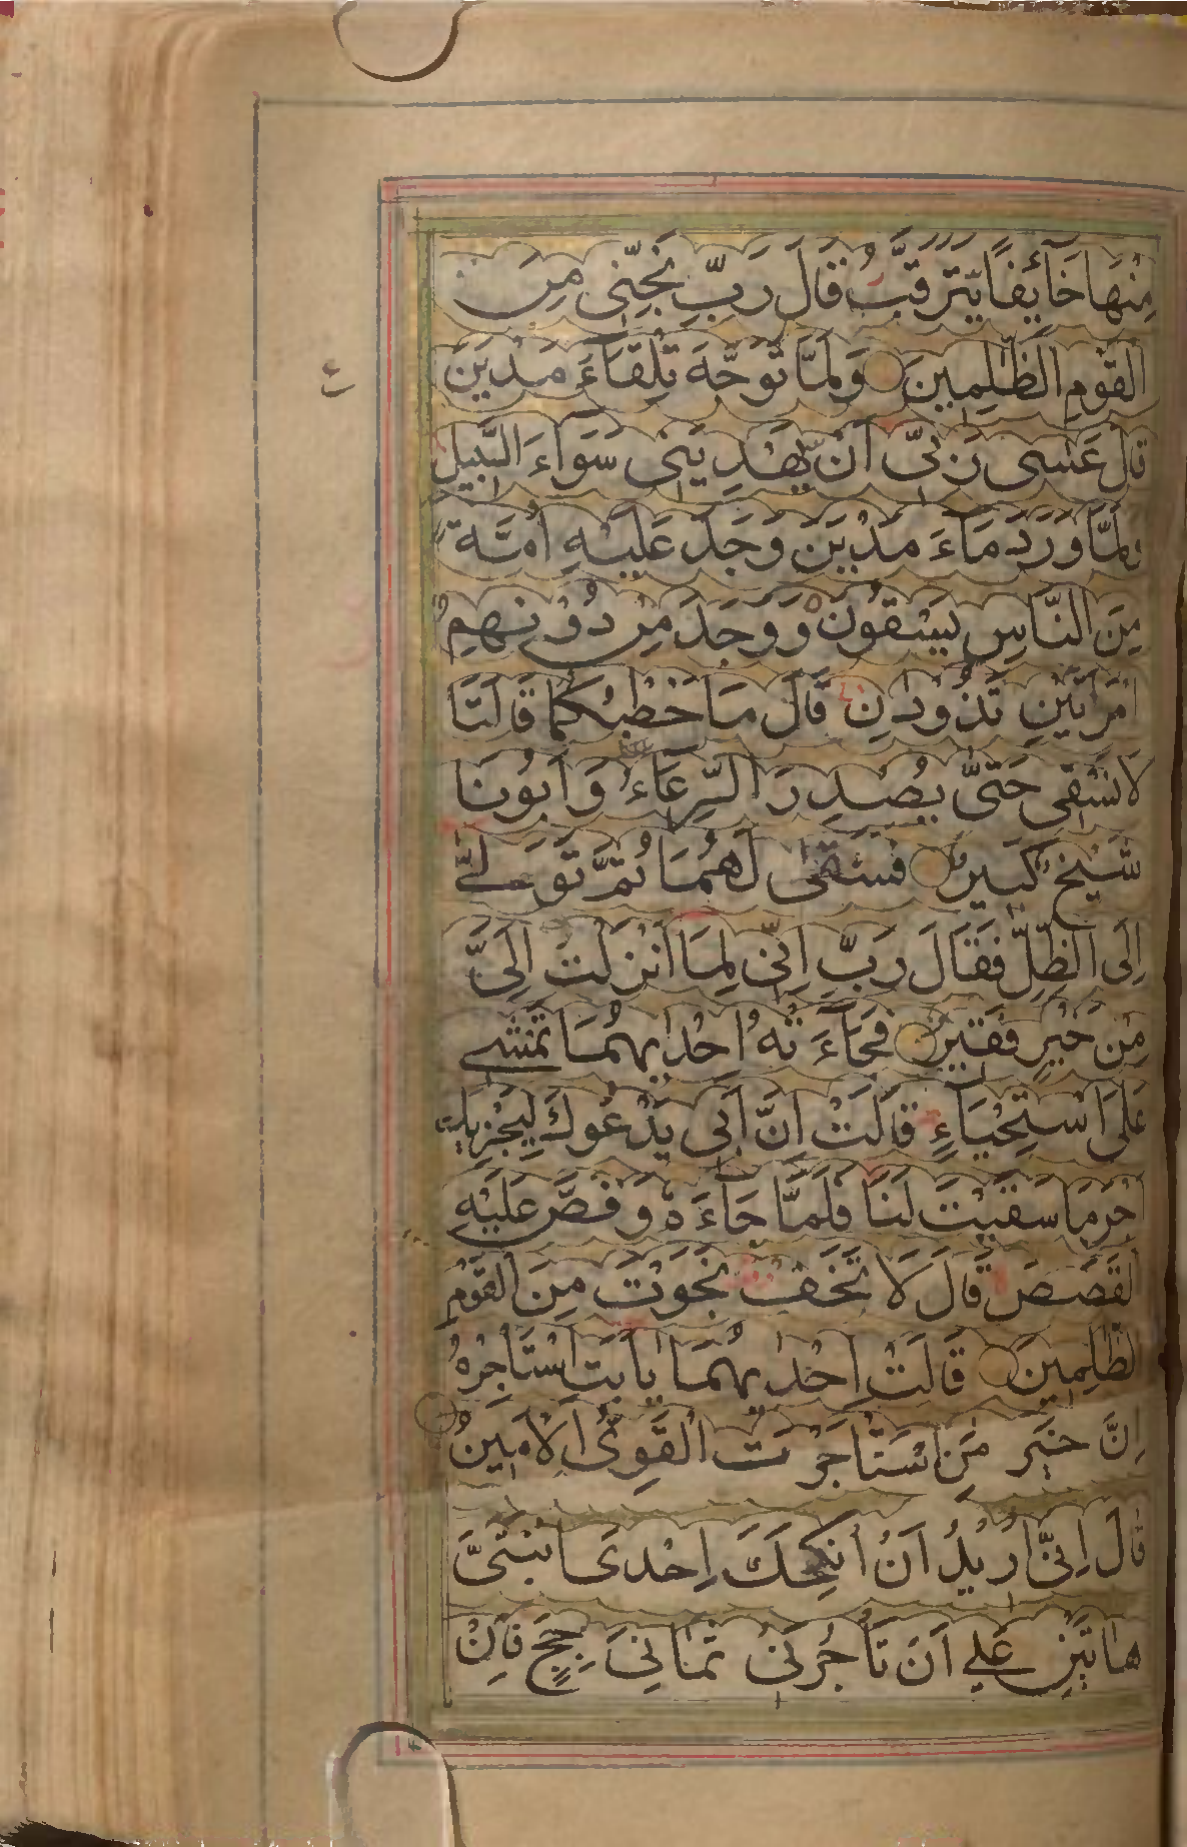 مِنْهَا خَآئِفًا يَّتَرَقَّبُ قَالَ رَبِّ نَجِّنِى مِنَ
الْقَوْمِ الظّٰلِمِينَ وَلَمَّا تَوَجَّهَ تِلْقَآءَ مَدْيَنَ
قَالَ عَسٰى رَبِّى اَنْ يَّهْدِيَنِى سَوَآءَ السَّبِيلِ
وَلَمَّا وَرَدَ مَآءَ مَدْيَنَ وَجَدَ عَلَيْهِ اُمَّةً
مِنَ النَّاسِ يَسْقُونَ وَوَجَدَ مِنْ دُوْنِهِمُ
امْرَاَتَيْنِ تَذُوْدَانِ قَالَ مَا خَطْبُكُمَا قَالَتَا
لَا نَسْقِى حَتّٰى يُصْدِرَ الرِّعَآءُ وَاَبُوْنَا
شَيْخٌ كَبِيرٌ فَسَقٰى لَهُمَا ثُمَّ تَوَلّٰى
اِلَى الظِّلِّ فَقَالَ رَبِّ اِنِّى لِمَا اَنْزَلْتَ اِلَىَّ
مِنْ خَيْرٍ فَقِيْرٌ فَجَآءَتْهُ اِحْدٰىهُمَا تَمْشِى
عَلَى اسْتِحْيَآءٍ قَالَتْ اِنَّ اَبِى يَدْعُوكَ لِيَجْزِيَكَ
اَجْرَ مَا سَقَيْتَ لَنَا فَلَمَّا جَآءَهٗ وَقَصَّ عَلَيْهِ
الْقَصَصَ قَالَ لَا تَخَفْ نَجَوْتَ مِنَ الْقَوْمِ
الظّٰلِمِيْنَ قَالَتْ اِحْدٰىهُمَا يٰاَبَتِ اسْتَاْجِرْهُ
اِنَّ خَيْرَ مَنِ اسْتَاْجَرْتَ الْقَوِىُّ الْاَمِيْنُ
قَالَ اِنِّى اُرِيْدُ اَنْ اُنْكِحَكَ اِحْدَى ابْنَتَىَّ
هَاتَيْنِ عَلٰى اَنْ تَاْجُرَنِى ثَمَانِىَ حِجَجٍ فَاِنْ